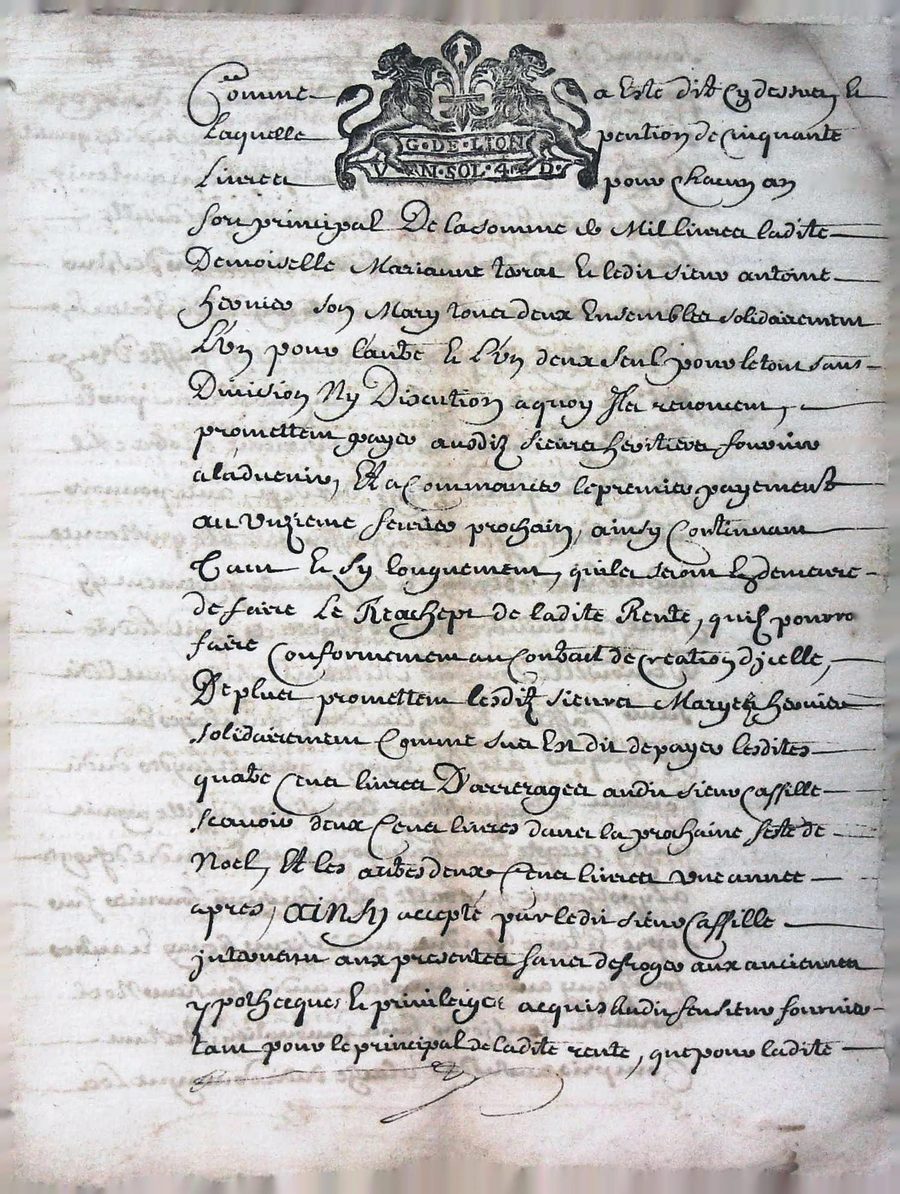 Comme a Esté dit Cy dessus, Et
G·DE·LION
Laquelle pention de Cinquante
V N·SOL·4·D·
Livres pour Chacun an
Sort principal De la somme de Mil livres ladite
Demoiselle Marianne tarat Et ledit sieur antoine
heruier son Mary tous deux Ensembles solidairement
L'Un pour l'autre Et L'Un deux seul pour le tout sans
Division Ny Discution a quoy Ils renoncent,
promettent payer ausdits sieurs heritiers fournier
a laduenir, Et a Commancer le premier payement
au unzieme feurier prochain, ainsy Continuant
Tant Et sy longuement, quils seront En demeure
de faire Le Reachept de ladite Rente, quils pourro
faire Conformement au Contrait de Creation d'jcelle,
De plus promettent lesdits sieurs Maryes heruier
solidairement Comme sus Est dit de payer lesdites
quatre Cens livres D'arrerages audit sieur Caffille
Scauoir deux Cens livres dans la prochaine feste de
Noel, Et les autres deux Cens livres une annee
apres, ainsy accepté par ledit sieur Caffille
jnteruenu aux presentes sans desroger aux anciennes
ypothecques Et privileiges acquis audit feu sieur fournier
tant pour le principal de ladite rente, que pour ladite